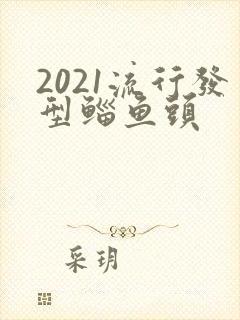 2021流行發
型鲻鱼頭
采玥